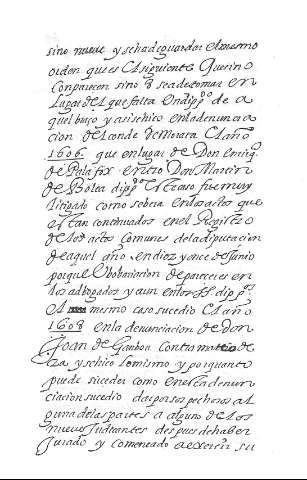 sino nueve y se ha de guardar el mesmo
orden que es el siguiente Que si no
conparecen sino 8 se a de tomar en
lugar del que falta un dipp.do de a
quel braço y asi se hiço en la denuncia
cion del conde de Morata el año
1606. que en lugar de Don enrriq.
de Palafox entro Don Martin
de Bolea dipp.do este caso fue muy
litigado como se bera en los actos que
estan continuados en el Registro
de los actos comunes de la diputacion
de aquel año, en diez y once de Junio
porque obo bariacion de pareceres en
los adbogados y aun entre los SS. dipp.os
el mesmo caso sucedio el año
1608 en la denunciacion de don
Joan de Gamboa contra
y se hiço lo mismo y por quanto
puede suceder como en esta denun
ciacion sucedio dar por sospechosos al
guna de las partes a alguno de los
nueve Judicantes despues de haber
jurado y començado a exercir su